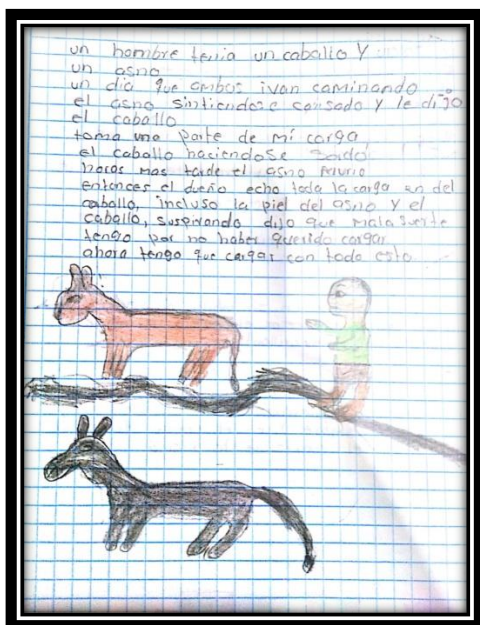 un hombre tenia un caballo y
un asno
un dia que ambos ivan caminando
el asno sintiendose cansado y le dijo
el caballo
toma una parte de mi carga
el caballo haciendose sordo
horas mas tarde el asno
entonces el dueño echo toda la carga en del
caballo, incluso la piel del asno y el
caballo, suspirando dijo que mala suerte
tengo por no haber querido cargar
ahora tengo que cargar con todo esto